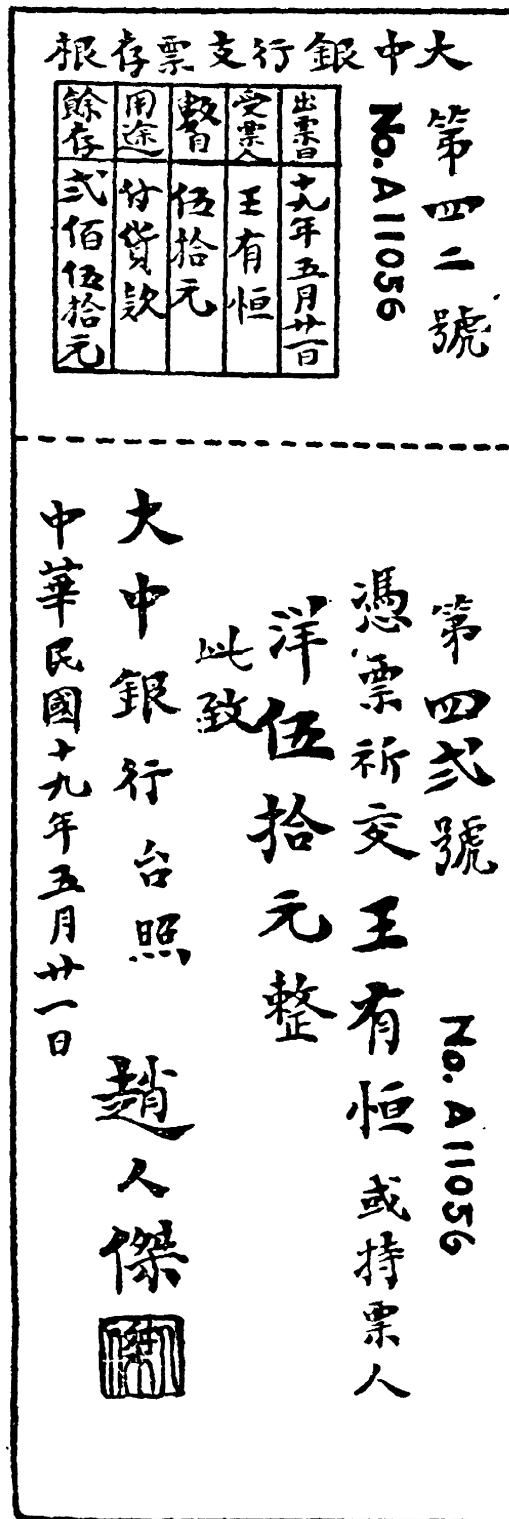 大中銀行支票存根
第四二號
No. A11056
出票日
十九年五月廿一日
受票人
王有恒
數目
伍拾元
用途
付貨款
餘存
弍佰伍拾元
第四弍號
No. A11056
憑票祈交王有恒或持票人
洋伍拾元整
此致
大中銀行台照 趙人傑
中華民國十九年五月廿一日